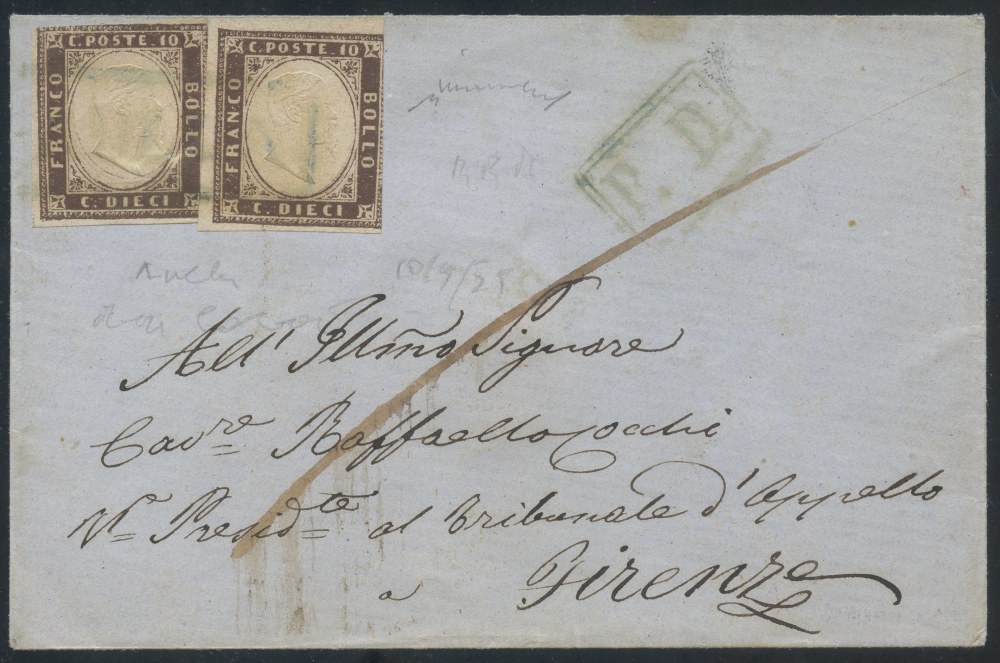 C. POSTE. 10
FRANCO
BOLLO
C. DIECI
C. POSTE. 10
FRANCO
BOLLO
C. DIECI
P. D.
All' Illmo Signore
Cavre Raffaello Cocchi
Ve Presidte al Tribunale d'Appello
a Firenze